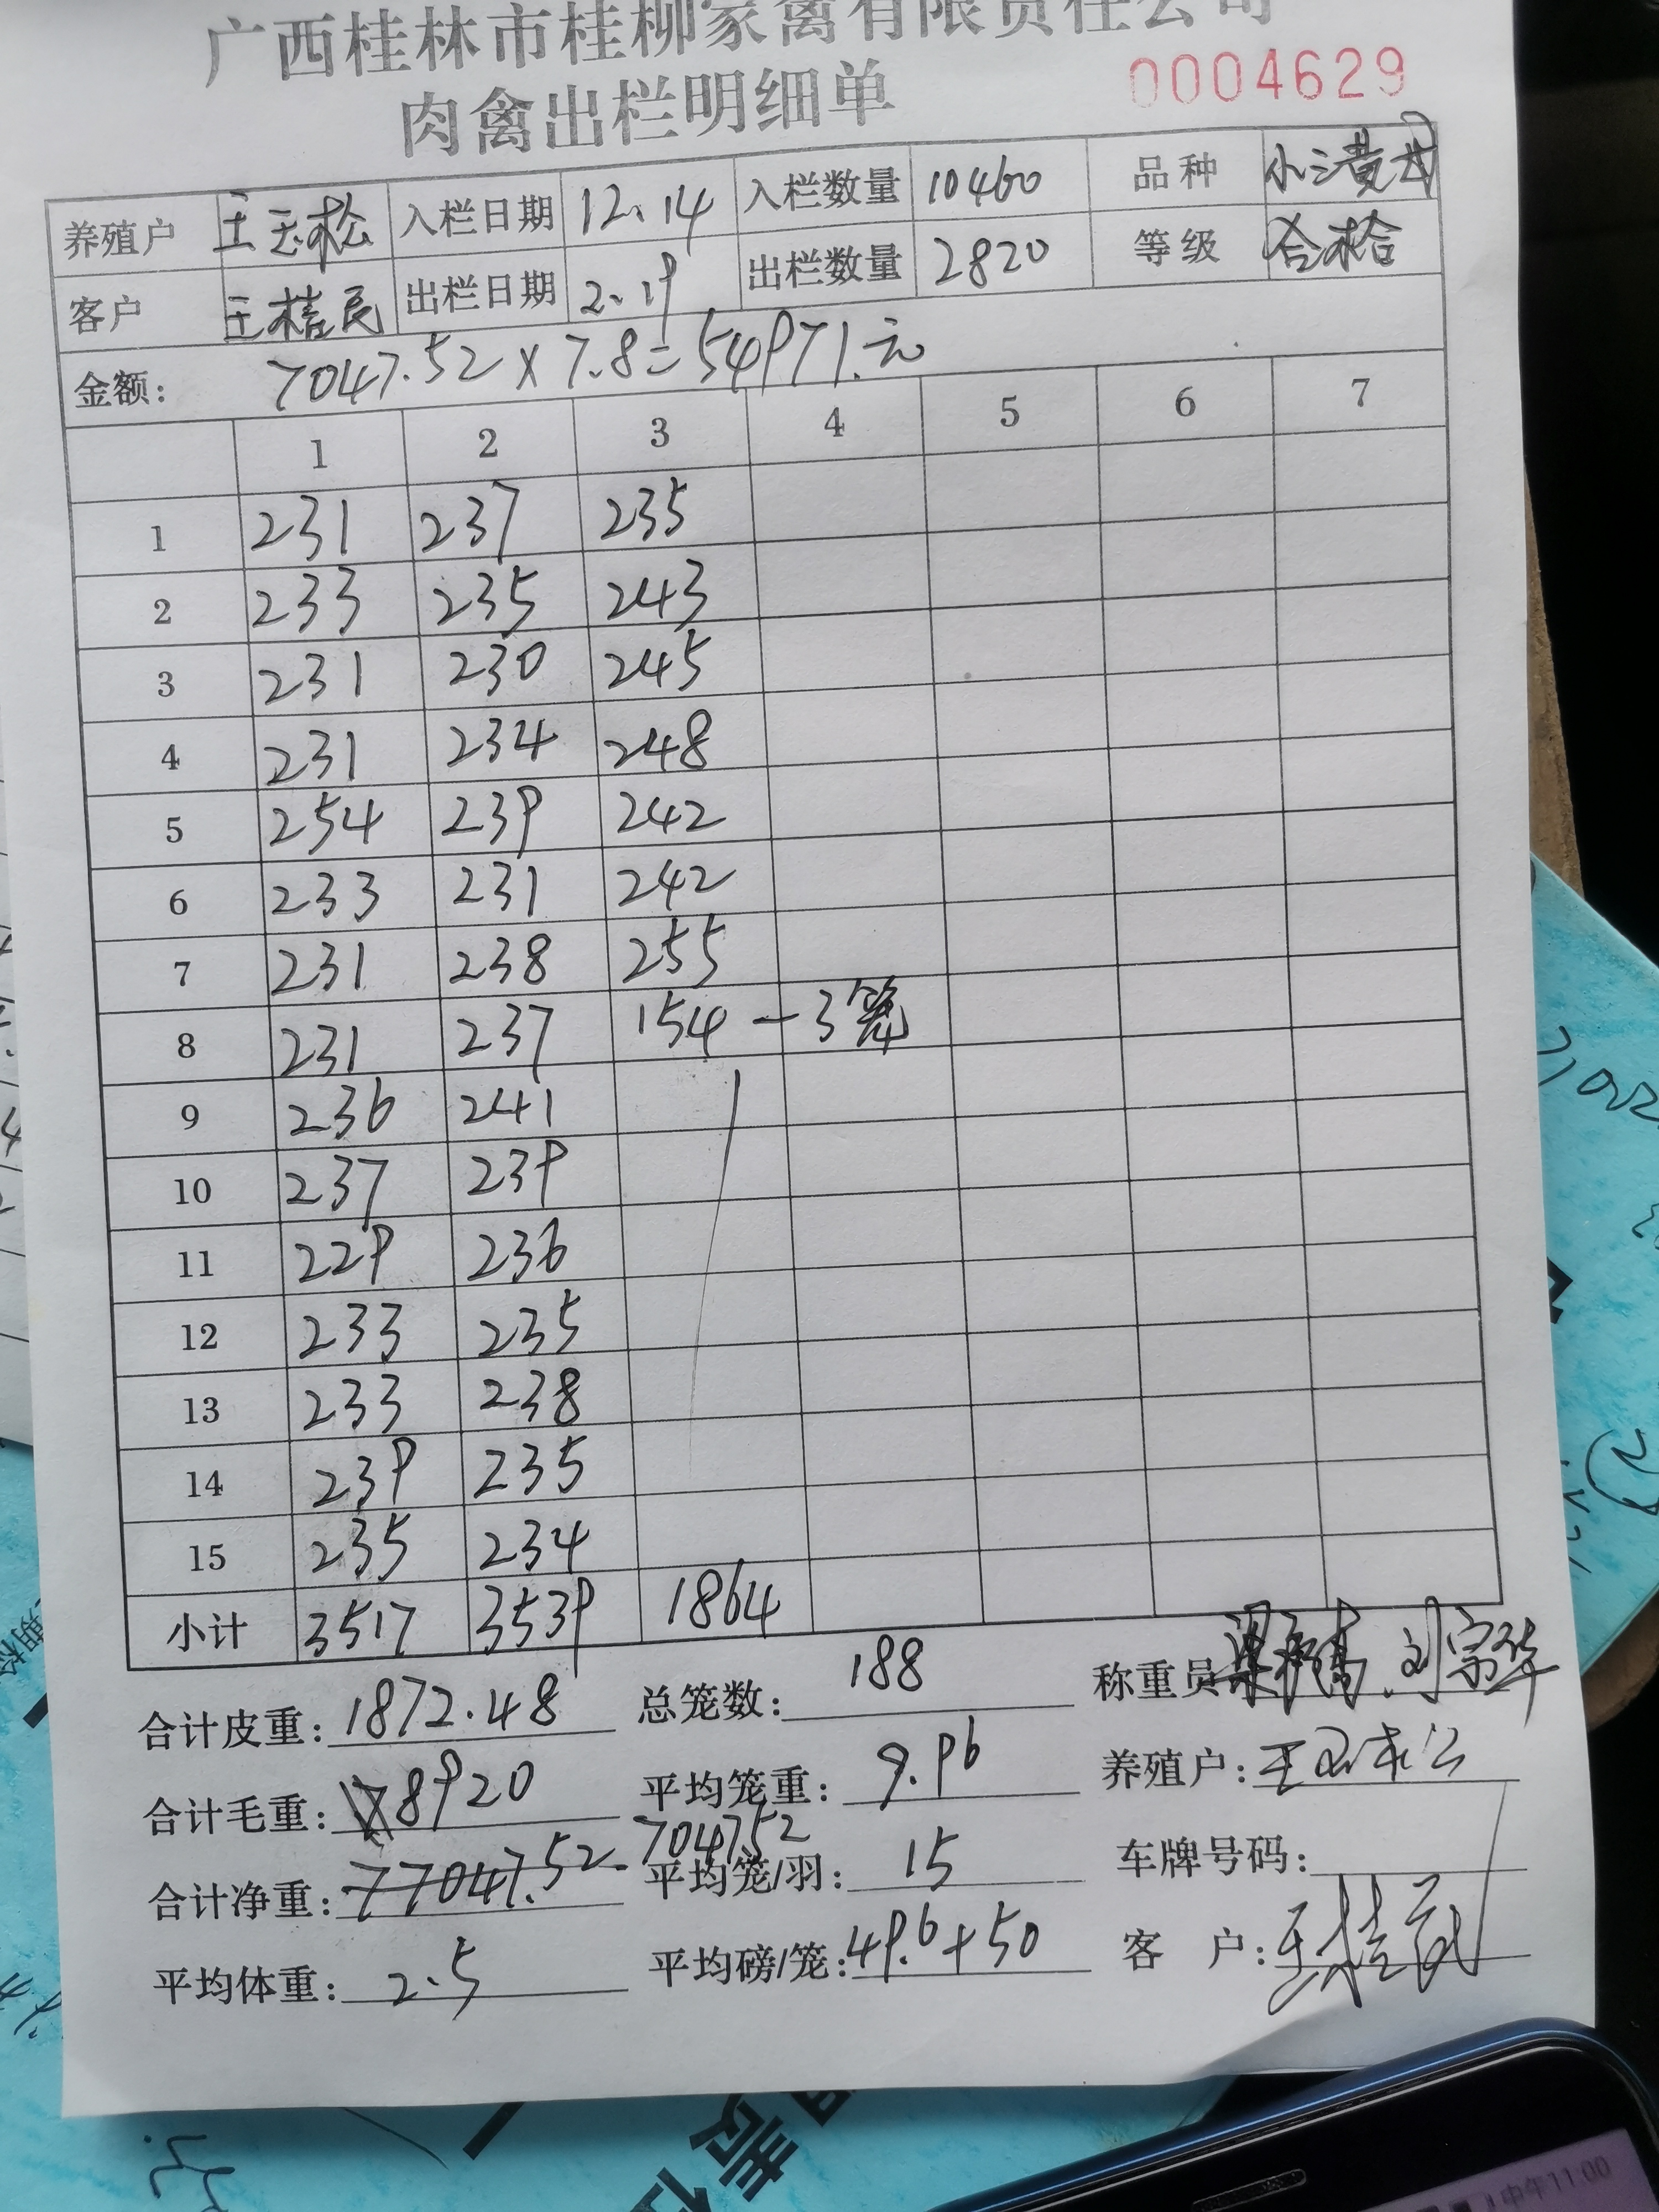 广西桂林市桂柳家禽有限责任公司
肉禽出栏明细单 0004629
养殖户 王玉松 入栏日期 12.14 入栏数量 10460 品种 小三黄
客户 王桂民 出栏日期 2.19 出栏数量 2820 等级 合格
金额: 7047.52×7.8=54971.元
1 2 3 4 5 6 7
1 231 237 235
2 233 235 243
3 231 230 245
4 231 234 248
5 254 239 242
6 233 231 242
7 231 238 255
8 231 237 154 — 3笼
9 236 241
10 237 239
11 229 236
12 233 235
13 233 238
14 239 235
15 235 234
小计 3517 3539 1864
合计皮重: 1872.48 总笼数: 188 称重员 刘宗华
合计毛重: 8920 平均笼重: 9.96 养殖户: 王玉松
合计净重: 77047.52 704752 平均笼/羽: 15 车牌号码:
平均体重: 2.5 平均磅/笼: 49.6+50 客 户:
中午11:00